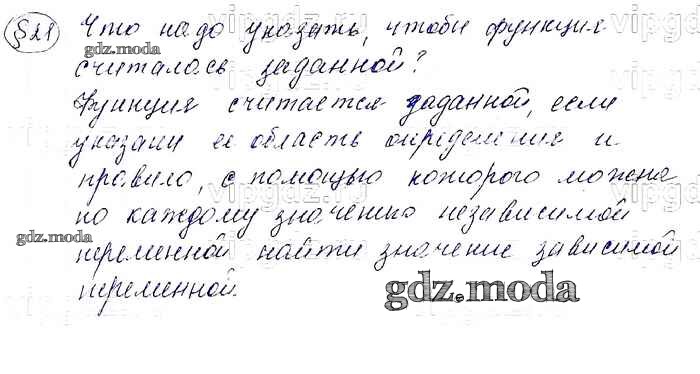 §21 Что надо указать, чтобы функция
считалась заданной?
Функция считается заданной, если
указаны её область определения и
правило, с помощью которого можно
по каждому значению независимой
переменной найти значение зависимой
переменной.
gdz.moda
gdz.moda
gdz.moda